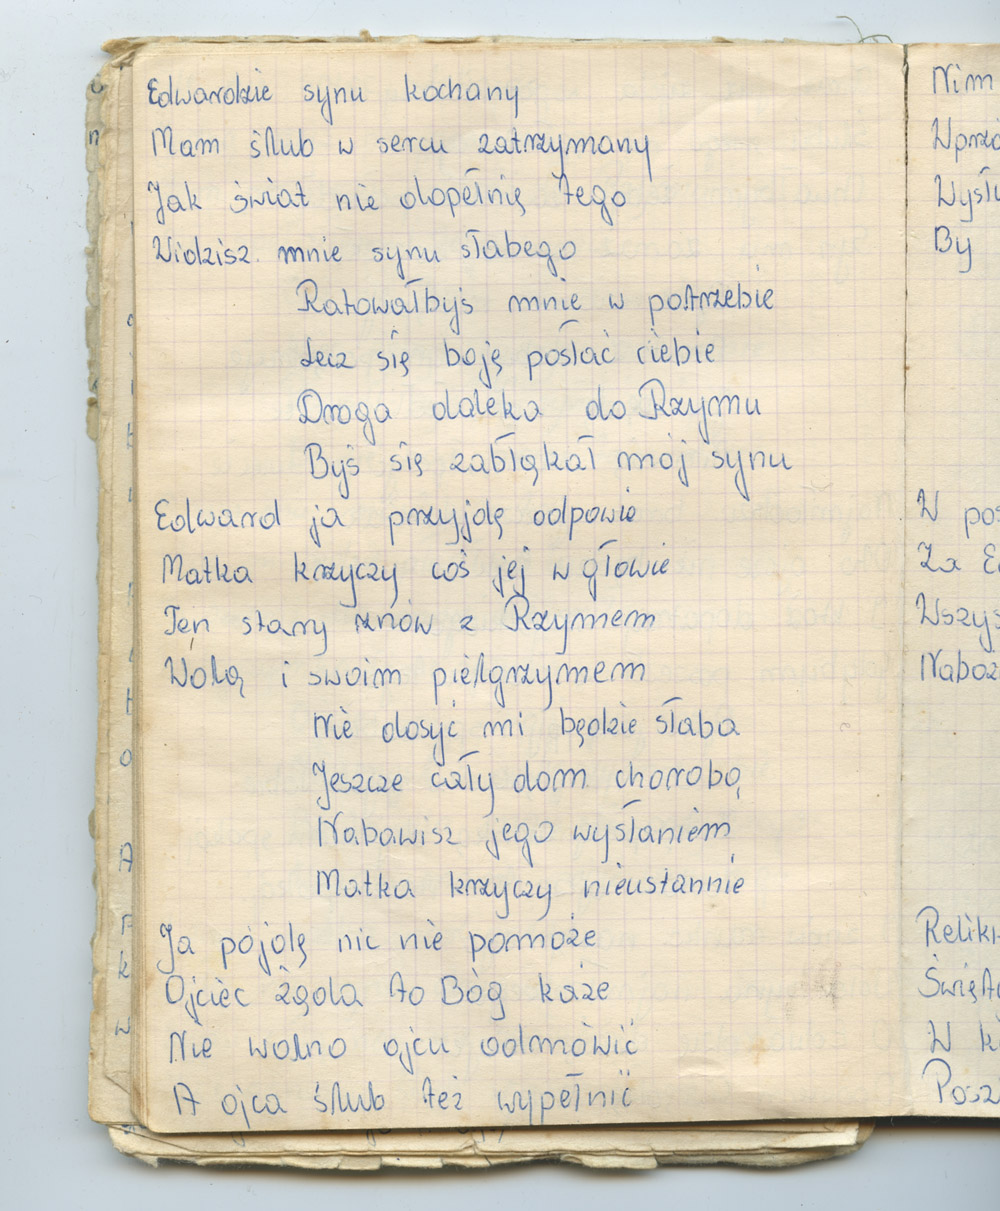 Edwardzie synu kochany
Mam ślub w sercu zatrzymany
Jak świat nie dopełnię tego
Widzisz mnie synu słabego
Ratowałbyś mnie w potrzebie
Lecz się boję posłać ciebie
Droga daleka do Rzymu
Byś się zabłąkał mój synu
Edward ja przyjdę odpowie
Matka krzyczy coś jej w głowie
Ten stary znów z Rzymem
Wolą i swoim pielgrzymem
Nie dosyć mi będzie słaba
Jeszcze cały dom chorobą
Nabawisz jego wysłaniem
Matka krzyczy nieustannie
Ja pójdę nic nie pomoże
Ojciec żgoda to Bóg każe
Nie wolno ojcu odmówić
A ojca ślub też wypełnić
Nim
By
W
Za
W